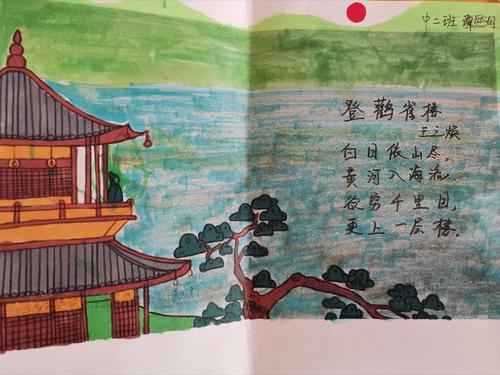 中二班 谭熙湘
登鹳雀楼
王之焕
白日依山尽,
黄河入海流,
欲穷千里目,
更上一层楼.